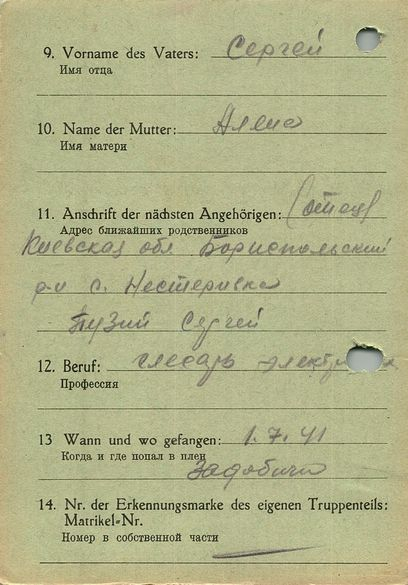 9. Vorname des Vaters: Сергей
Имя отца
10. Name der Mutter: Алена
Имя матери
11. Anschrift der nächsten Angehörigen: (отец)
Адрес ближайших родственников
Киевская обл Бориспольский
р-н с. Нестеривка
Пузий Сергей
12. Beruf: слесарь
Профессия
13 Wann und wo gefangen: 1.7.41
Когда и где попал в плен
14. Nr. der Erkennungsmarke des eigenen Truppenteils:
Matrikel-Nr.
Номер в собственной части